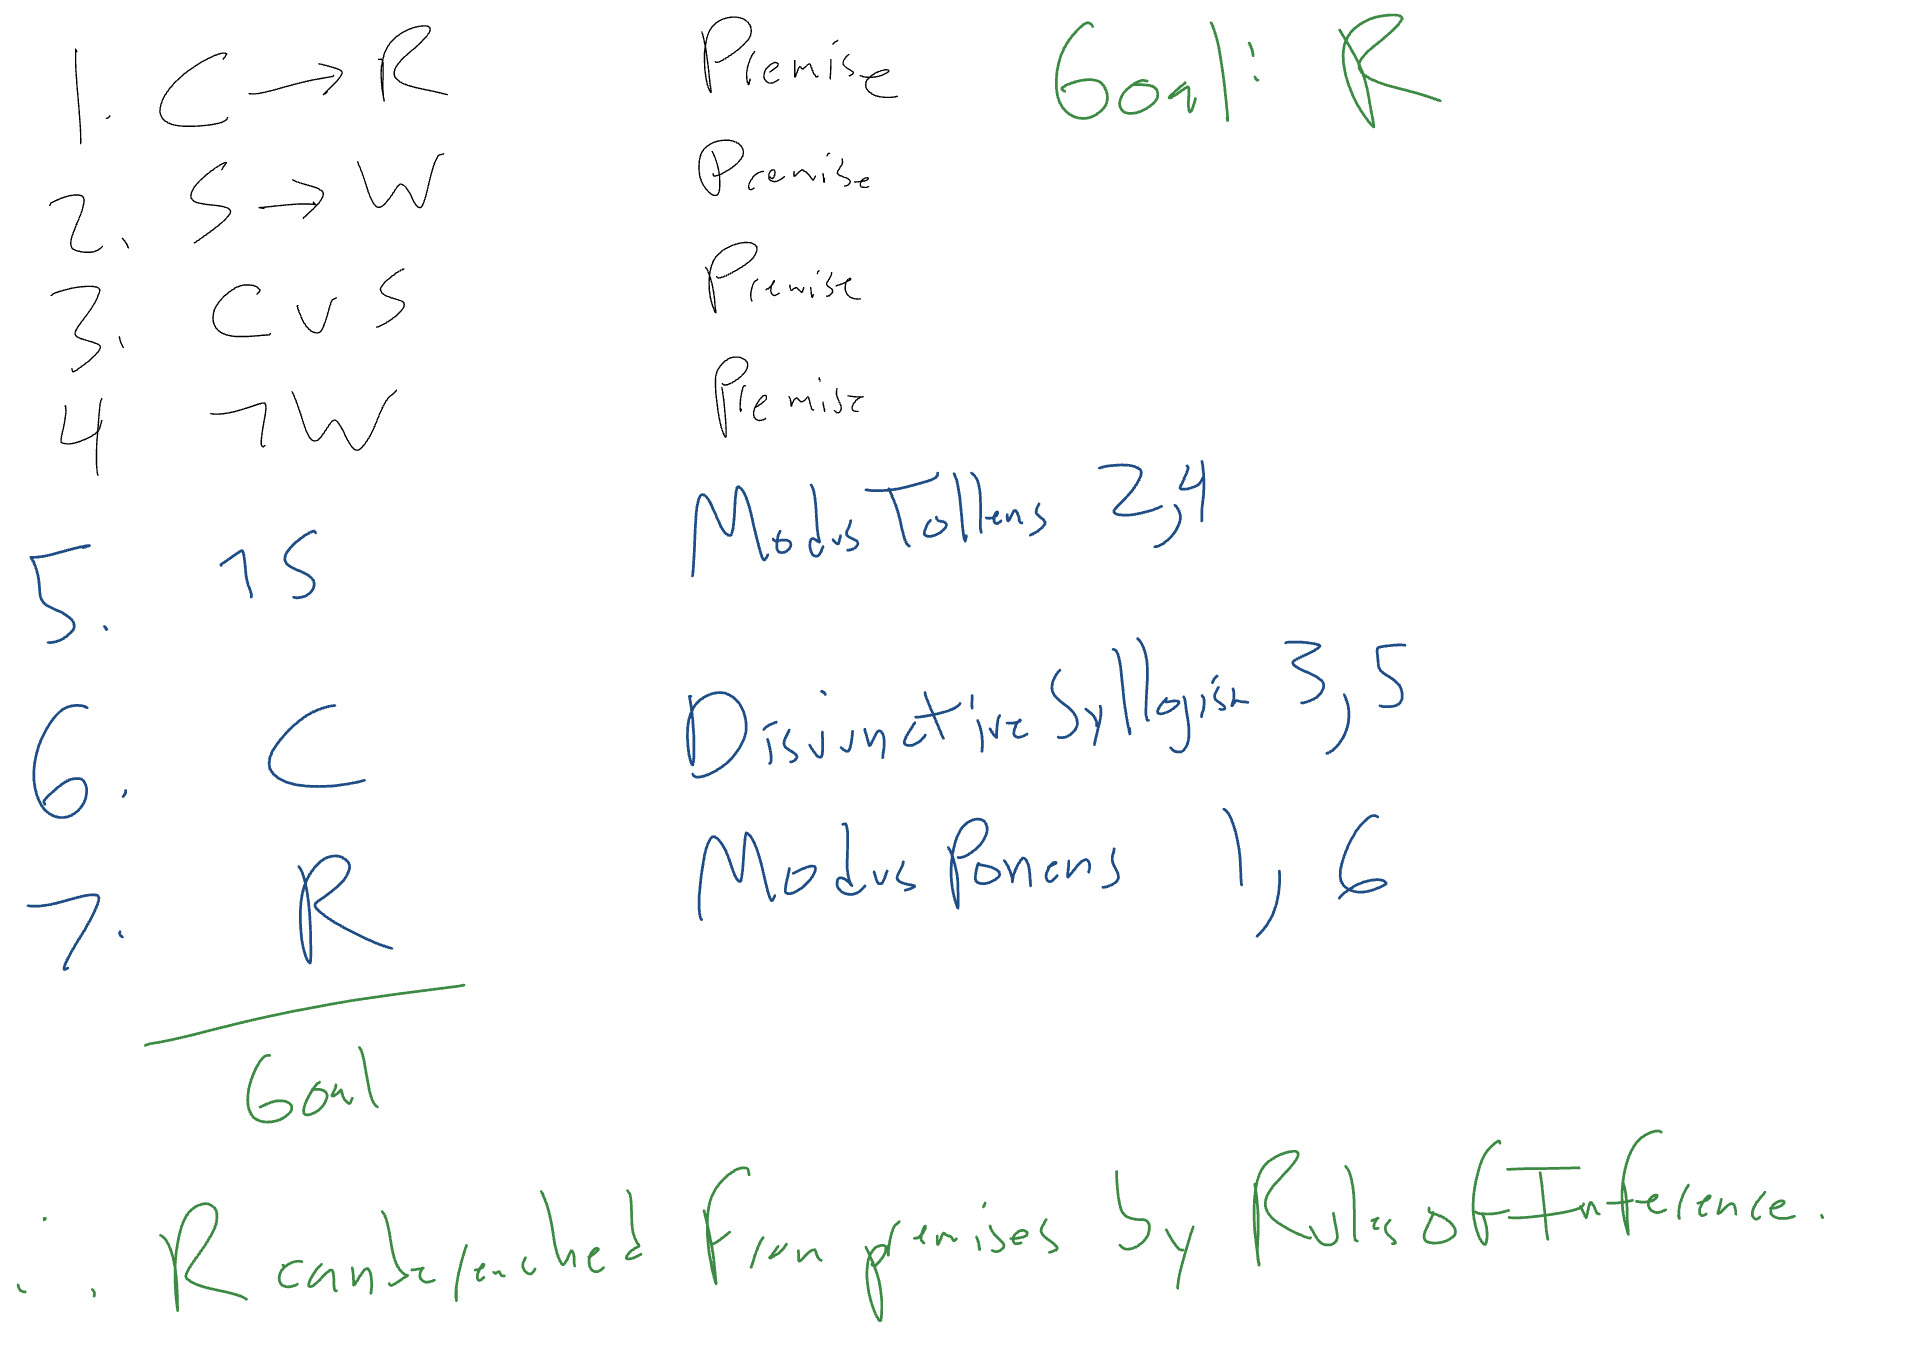 1. C → R Premise Goal: R
2. S → W Premise
3. C ∨ S Premise
4 ¬W Premise
5. ¬S Modus Tollens 2,4
6. C Disjunctive Syllogism 3,5
7. R Modus Ponens 1,6
Goal
∴ R can be reached from premises by Rules of Inference.